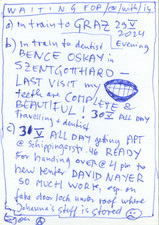 WAITING FOR/co/with/is
a) in train to GRAZ 29 V 2024
b) in train to dentist Evening
BENCE OSKAY in
SZENTGOTTHARD -
LAST VISIT my
teeth are COMPLETE &
BEAUTIFUL! 30 V ALL DAY
Travelling + dentist
c) 30 V ALL DAY getting APT
@ Schippingerstr. 46 READY
For handing over @ 4 pm to
new renter DAVID NAYER
SO MUCH WORK, esp. on
fake door lock under roof where
Johanna's stuff is stored